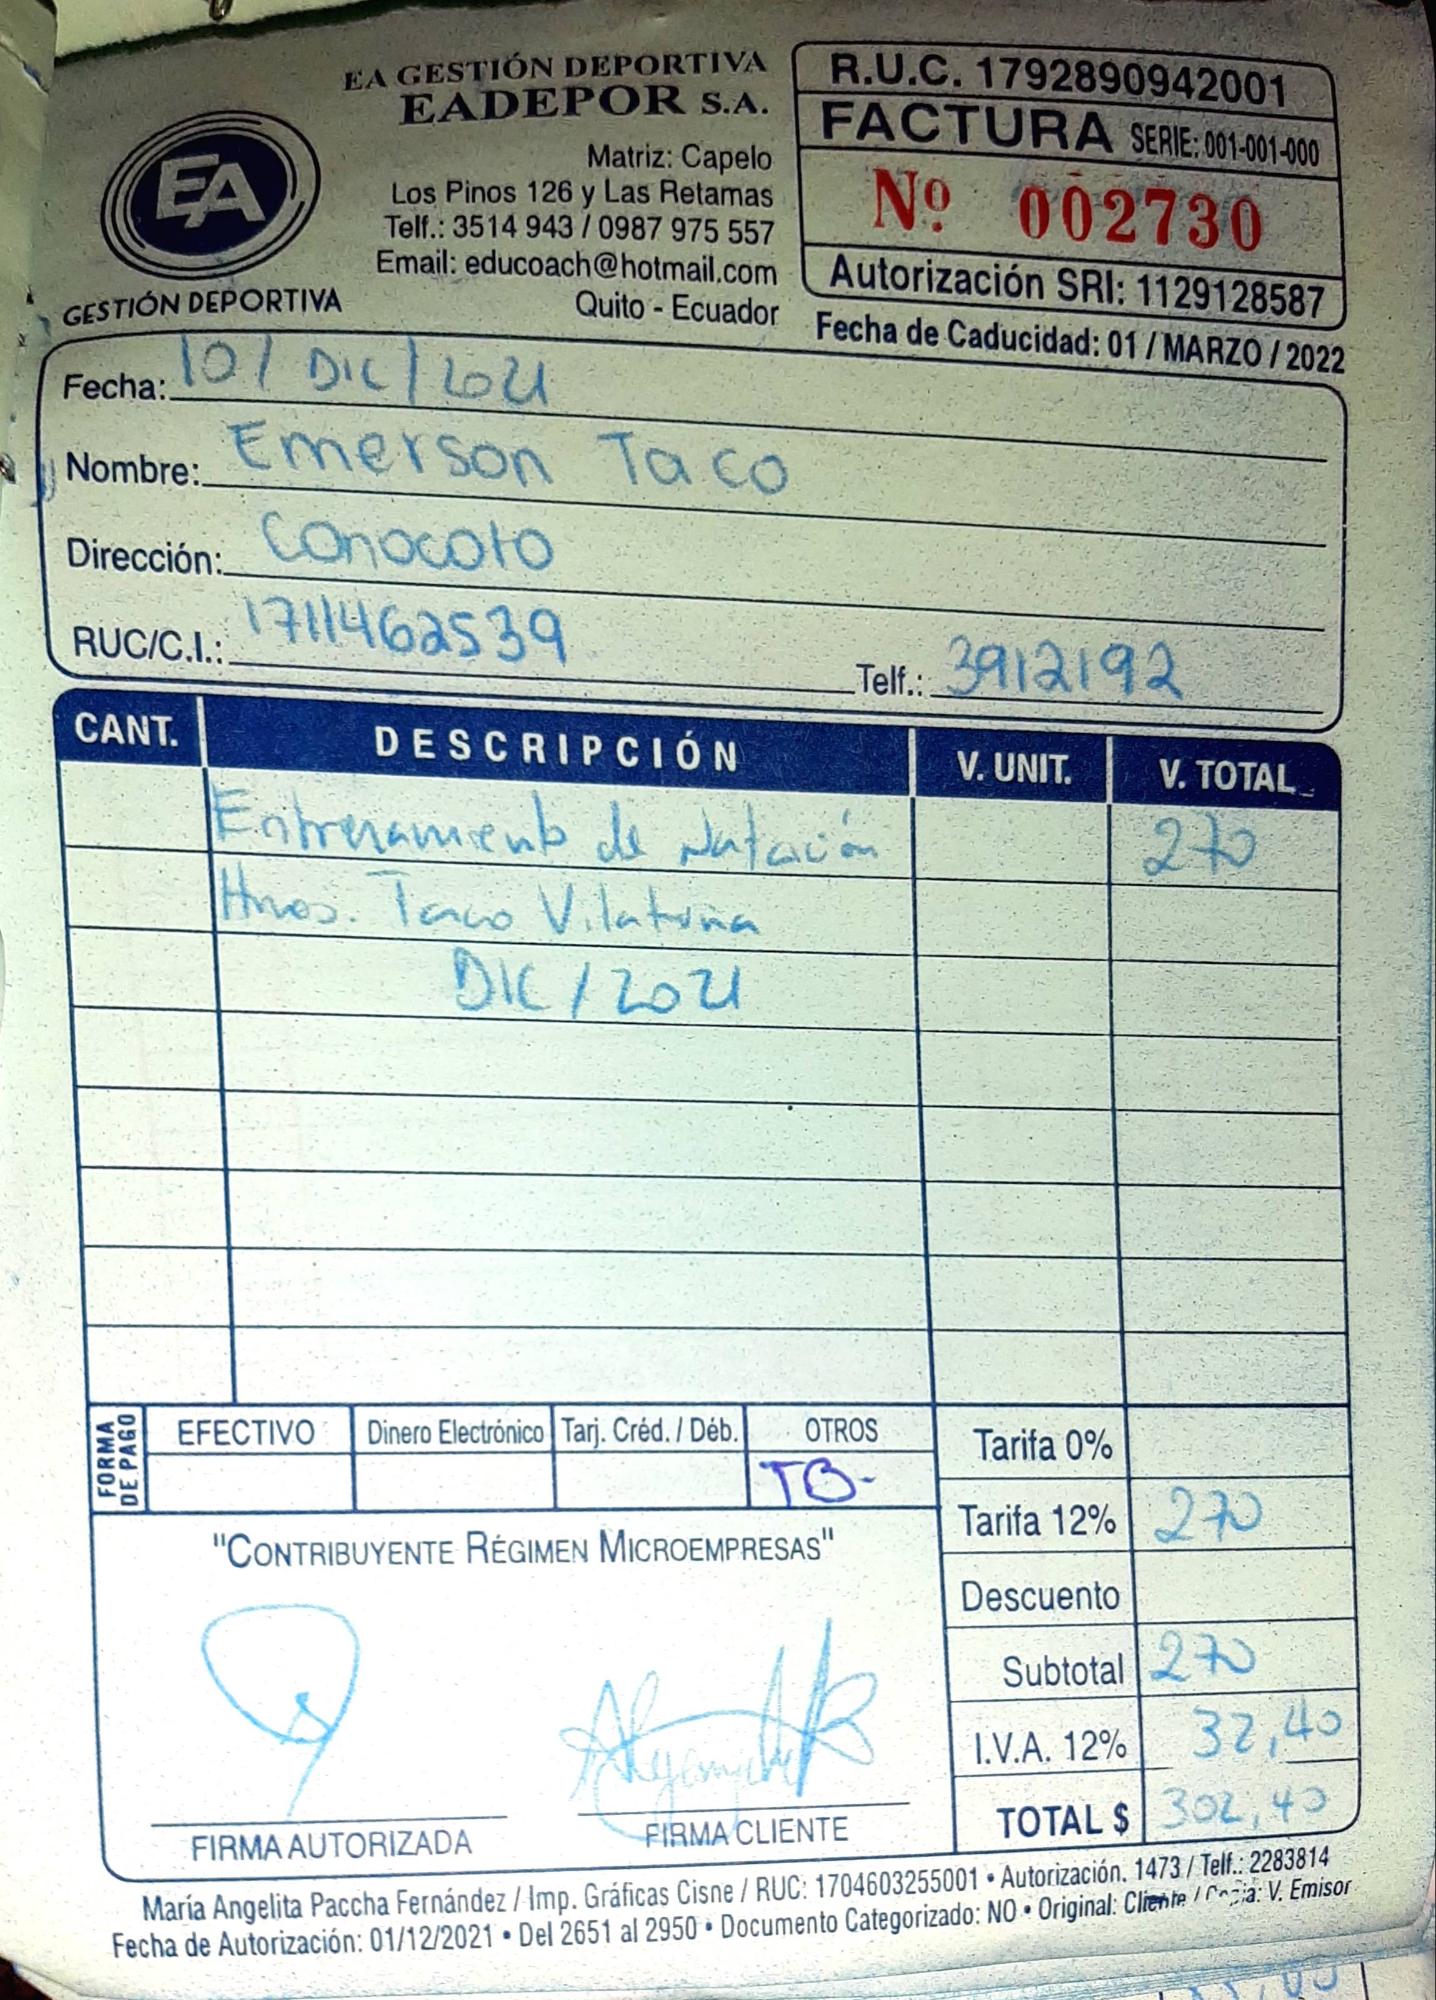 EA GESTIÓN DEPORTIVA
EADEPOR S.A.
Matriz: Capelo
Los Pinos 126 y Las Retamas
Telf.: 3514 943 / 0987 975 557
Email: educoach@hotmail.com
Quito - Ecuador
EA
GESTIÓN DEPORTIVA
R.U.C. 1792890942001
FACTURA SERIE: 001-001-000
Nº 002730
Autorización SRI: 1129128587
Fecha de Caducidad: 01 / MARZO / 2022
Fecha: 10 / DIC / 2021
Nombre: Emerson Taco
Dirección: Conocoto
RUC/C.I.: 1711462539 Telf.: 3912192
CANT. DESCRIPCIÓN V. UNIT. V. TOTAL
Entrenamiento de Natación 270
Hnos. Taco Vilatuña
DIC / 2021
FORMA DE PAGO EFECTIVO Dinero Electrónico Tarj. Créd. / Déb. OTROS
TB-
Tarifa 0%
Tarifa 12% 270
Descuento
Subtotal 270
I.V.A. 12% 32,40
TOTAL $ 302,40
"CONTRIBUYENTE RÉGIMEN MICROEMPRESAS"
FIRMA AUTORIZADA FIRMA CLIENTE
María Angelita Paccha Fernández / Imp. Gráficas Cisne / RUC: 1704603255001 • Autorización. 1473 / Telf.: 2283814
Fecha de Autorización: 01/12/2021 • Del 2651 al 2950 • Documento Categorizado: NO • Original: Cliente / Copia: V. Emisor